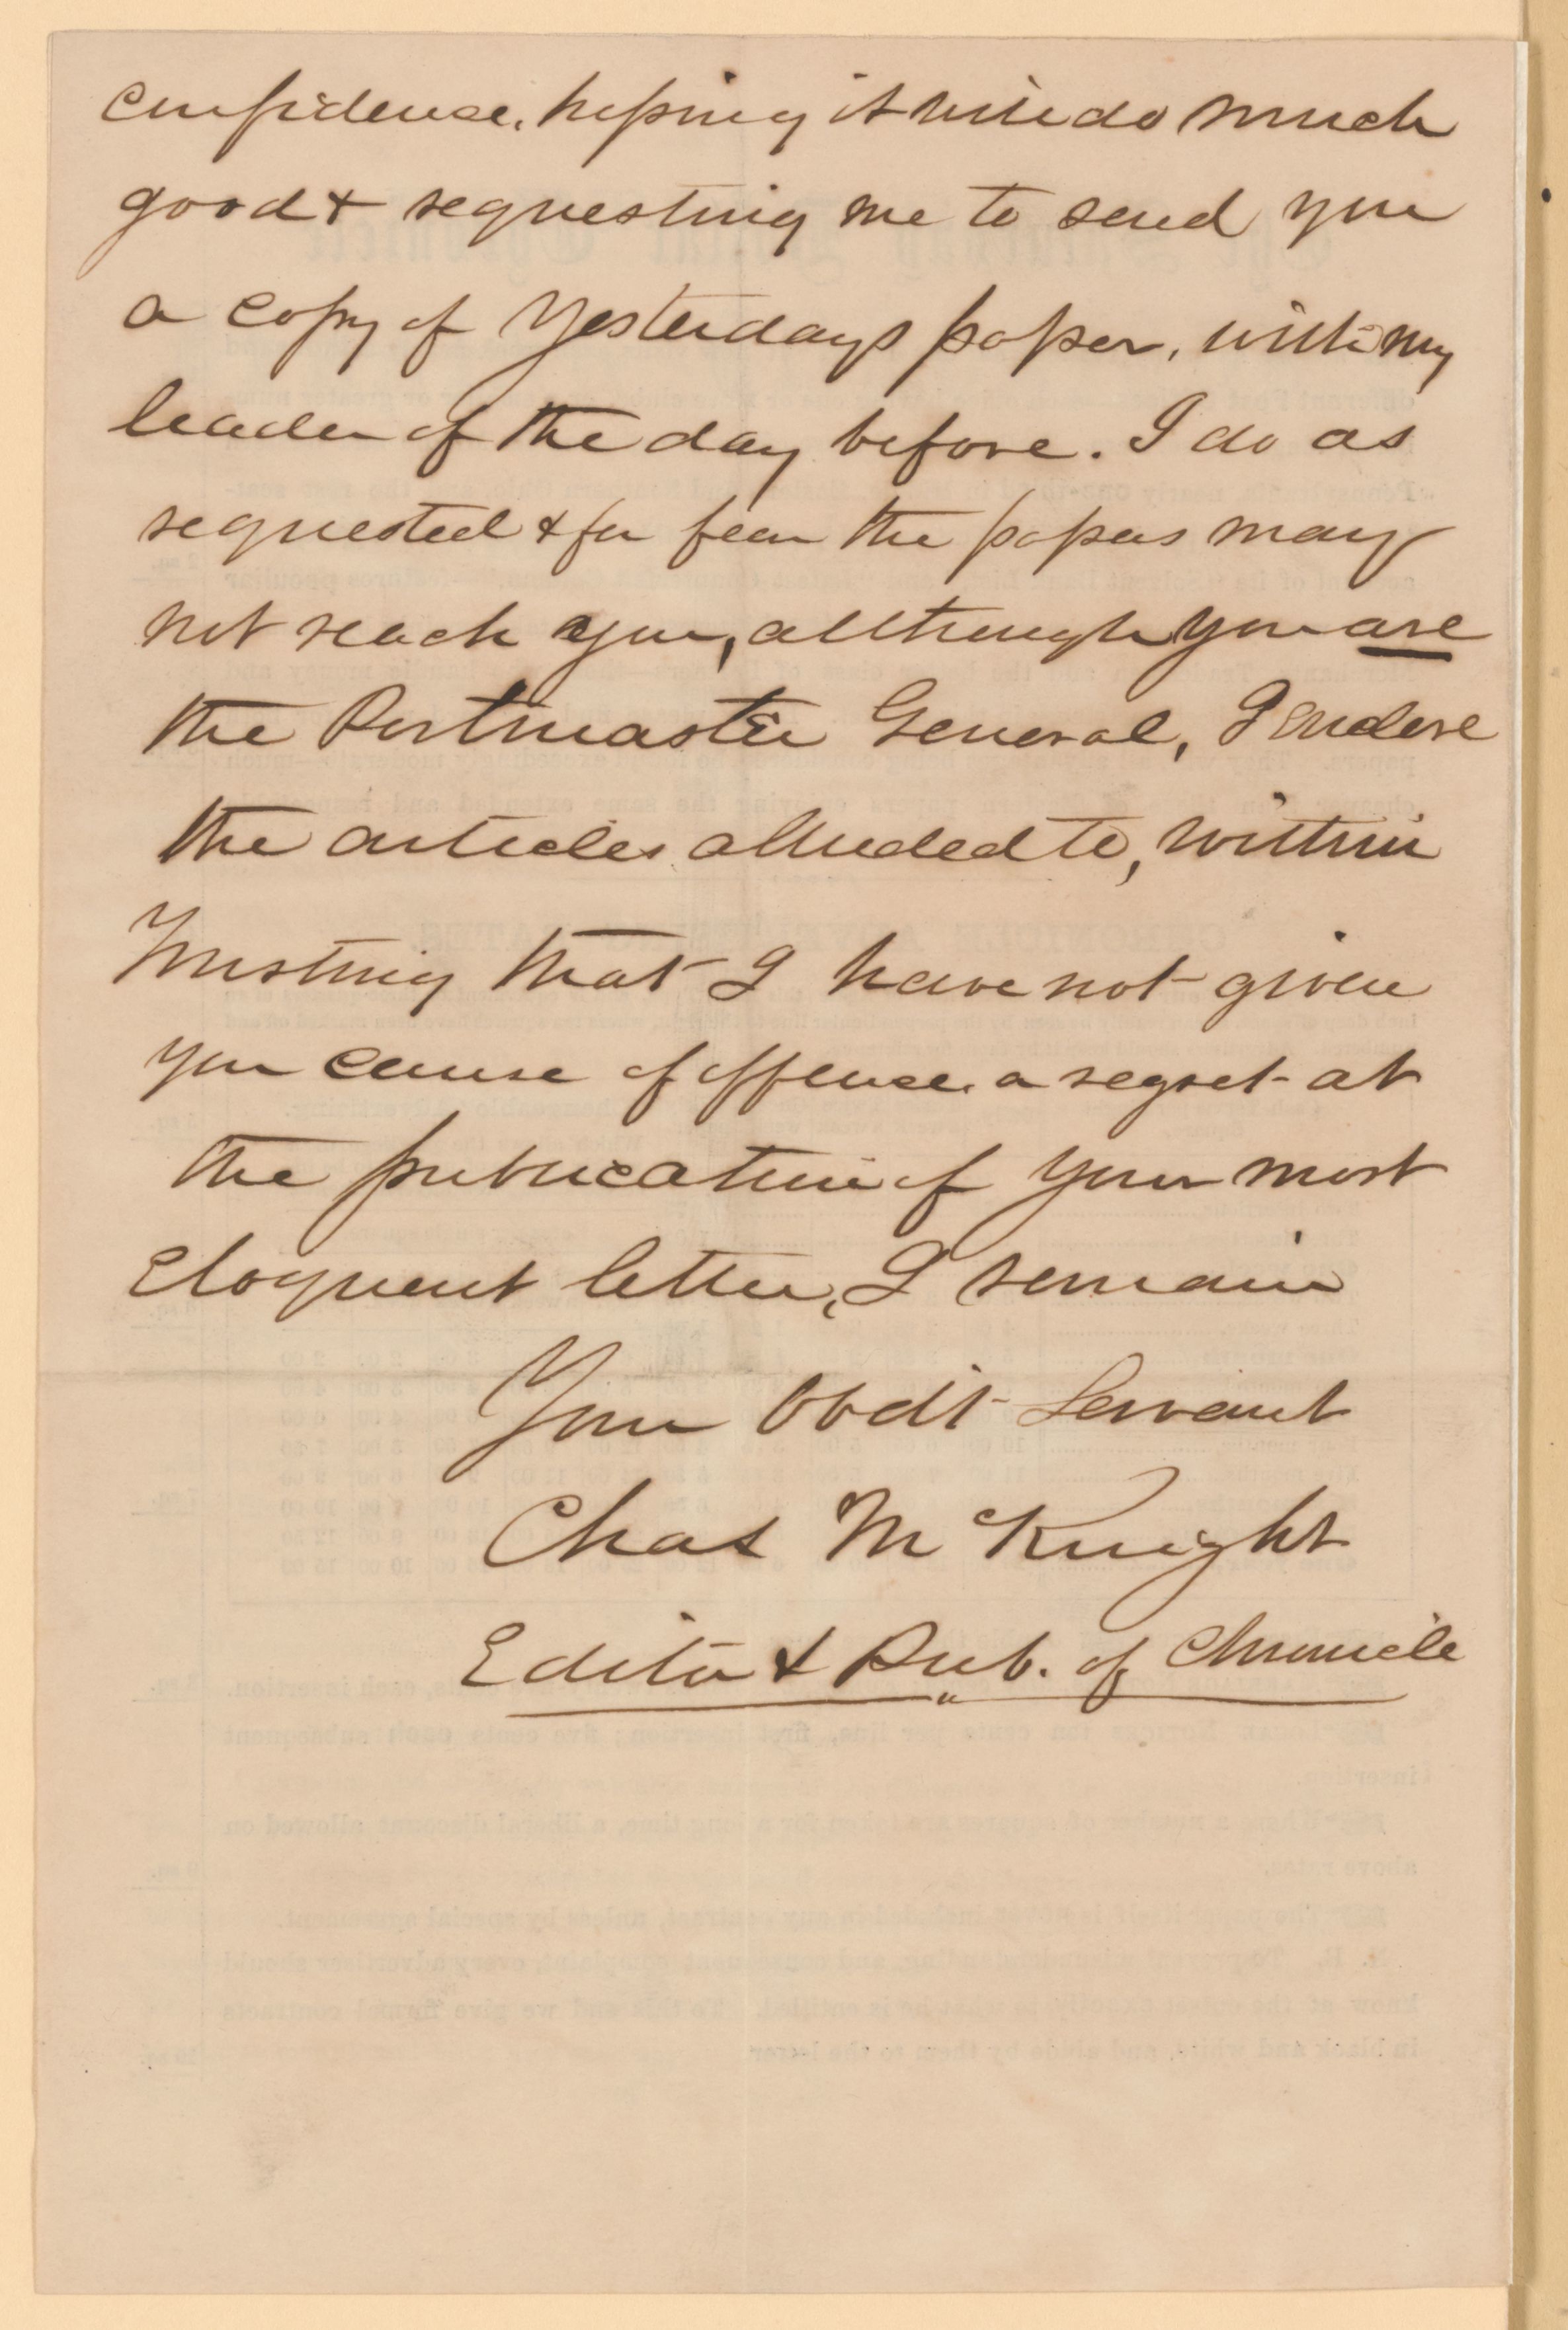 confidence, hoping it will do much
good & requesting me to send you
a copy of Yesterdays paper, with my
leader of the day before. I do as
requested & for fear the papers may
not reach you, allthough you are
the Postmaster General, I endose
the articles alluded to, within
Trusting that I have not given
you cause of offence, a regret at
the publication of your most
Eloquent letter, I remain
Your Obdt Servant
Chas McKnight
Editor & Pub. of Chronicle